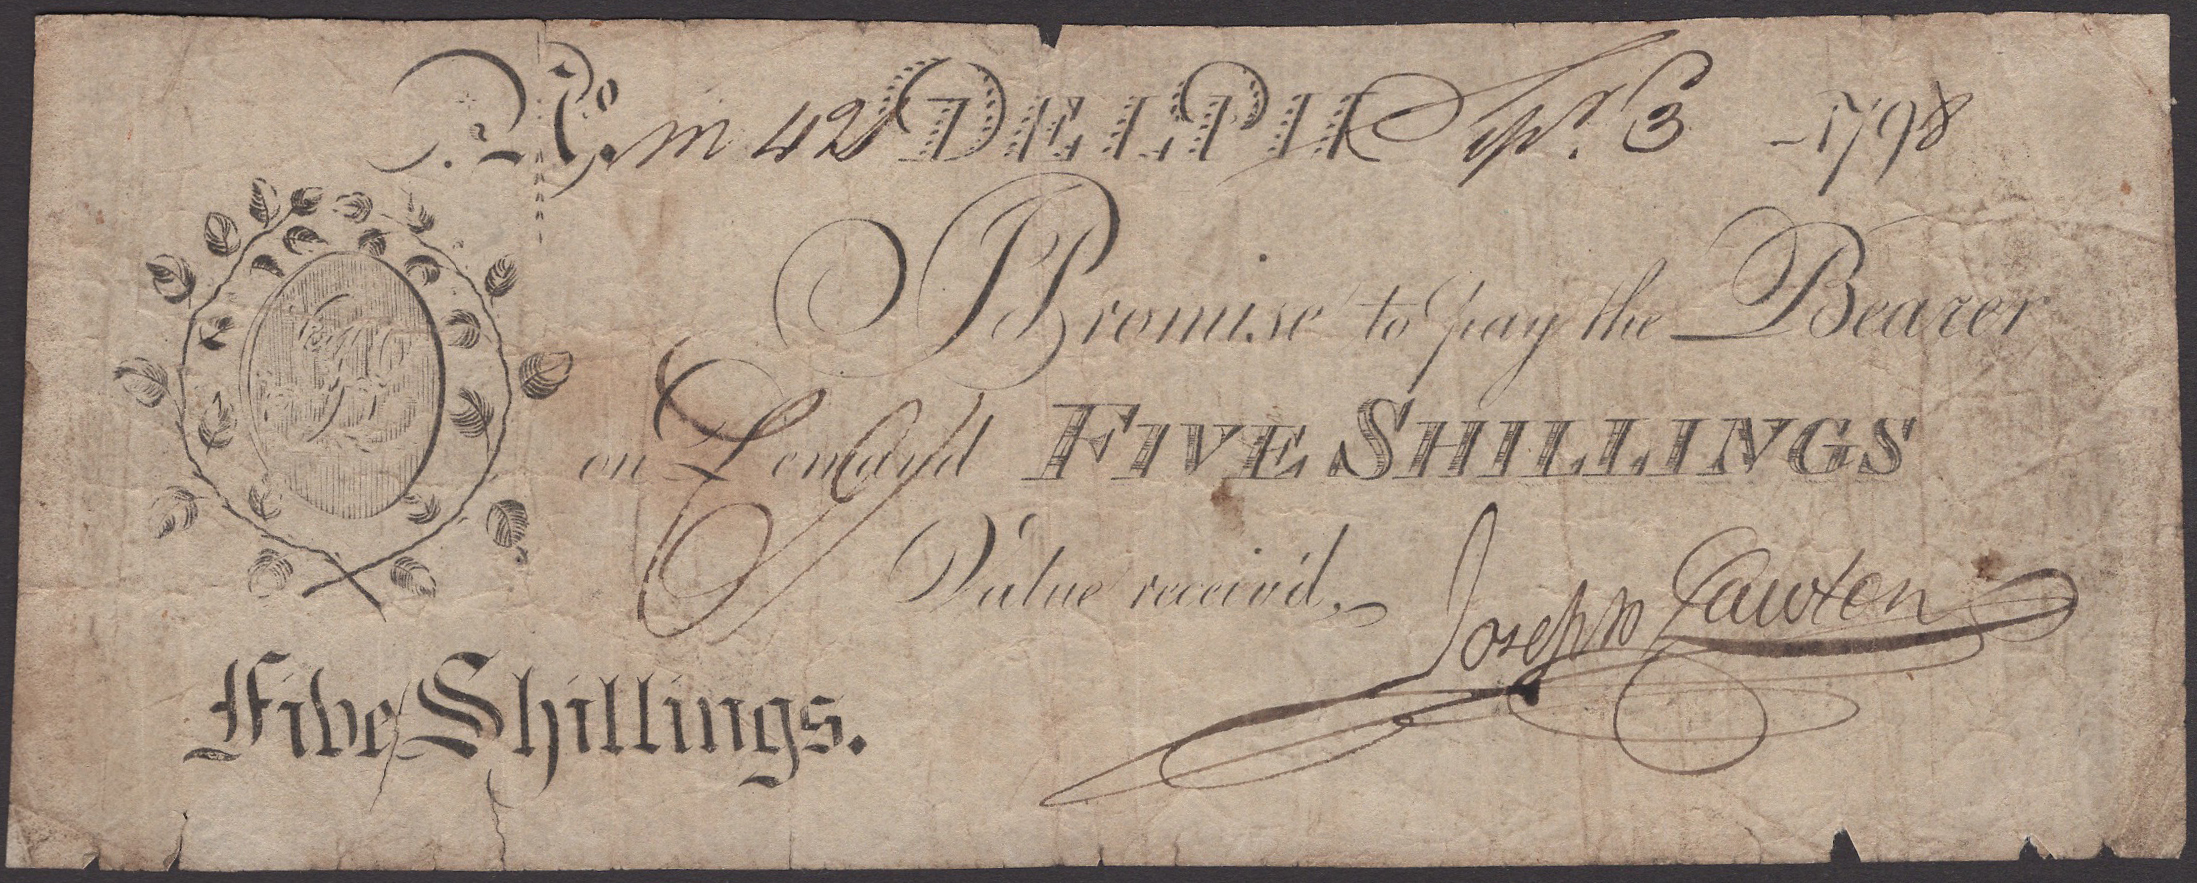 No. m 42 DELPH Sepr. 3 1798
I Promise to pay the Bearer
on Demand FIVE SHILLINGS
Value receiv'd,
Joseph Lawton
Five Shillings.